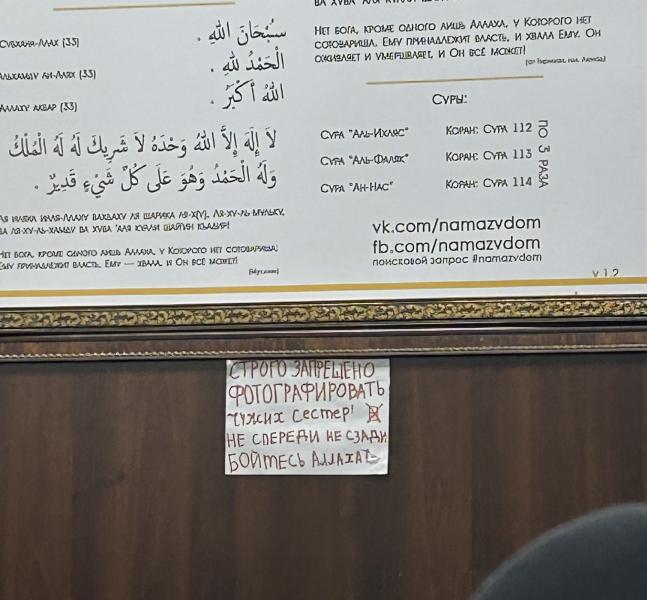 СУБХАНА-ЛЛАХ (33)
سُبْحَانَ اللهِ .
АЛЬХАМДУ ЛИ-ЛЛЯХ (33)
الْحَمْدُ لِلهِ .
АЛЛАХУ АКБАР (33)
اللهُ أَكْبَرُ .
لَا إِلَهَ إِلَّا اللهُ وَحْدَهُ لَا شَرِيكَ لَهُ لَهُ الْمُلْكُ
وَلَهُ الْحَمْدُ وَهُوَ عَلَى كُلِّ شَيْءٍ قَدِيرٌ .
ЛЯ ИЛЯХА ИЛЛЯ-ЛЛАХУ ВАХДАХУ ЛЯ ШАРИКА ЛЯ-Х(У), ЛЯ-ХУ-ЛЬ-МУЛЬКУ,
ВА ЛЯ-ХУ-ЛЬ-ХАМДУ ВА ХУВА 'АЛЯ КУЛЛИ ШАЙУИН КЪАДИР!
НЕТ БОГА, КРОМЕ ОДНОГО ЛИШЬ АЛЛАХА, У КОТОРОГО НЕТ СОТОВАРИЩА;
ЕМУ ПРИНАДЛЕЖИТ ВЛАСТЬ, ЕМУ — ХВАЛА, И ОН ВСЁ МОЖЕТ!
(Муслим)
НЕТ БОГА, КРОМЕ ОДНОГО ЛИШЬ АЛЛАХА, У КОТОРОГО НЕТ
СОТОВАРИЩА, ЕМУ ПРИНАДЛЕЖИТ ВЛАСТЬ, И ХВАЛА ЕМУ. ОН
ОЖИВЛЯЕТ И УМЕРЩВЛЯЕТ, И ОН ВСЁ МОЖЕТ!
СУРЫ:
СУРА "АЛЬ-ИХЛЯС" КОРАН: СУРА 112
СУРА "АЛЬ-ФАЛЯК" КОРАН: СУРА 113
СУРА "АН-НАС" КОРАН: СУРА 114
ПО 3 РАЗА
vk.com/namazvdom
fb.com/namazvdom
поисковой запрос #namazvdom
v 1.2
СТРОГО ЗАПРЕЩЕНО
ФОТОГРАФИРОВАТЬ
чужих сестер!
НЕ СПЕРЕДИ НЕ СЗАДИ
БОЙТЕСЬ АЛЛАХА